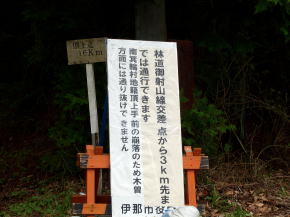 頂上迄
林道御射山線交差 点から3km先ま
では通行できます
南箕輪村地籍頂上手前の崩落のため木曽
方面には通り抜けできません
伊那市役